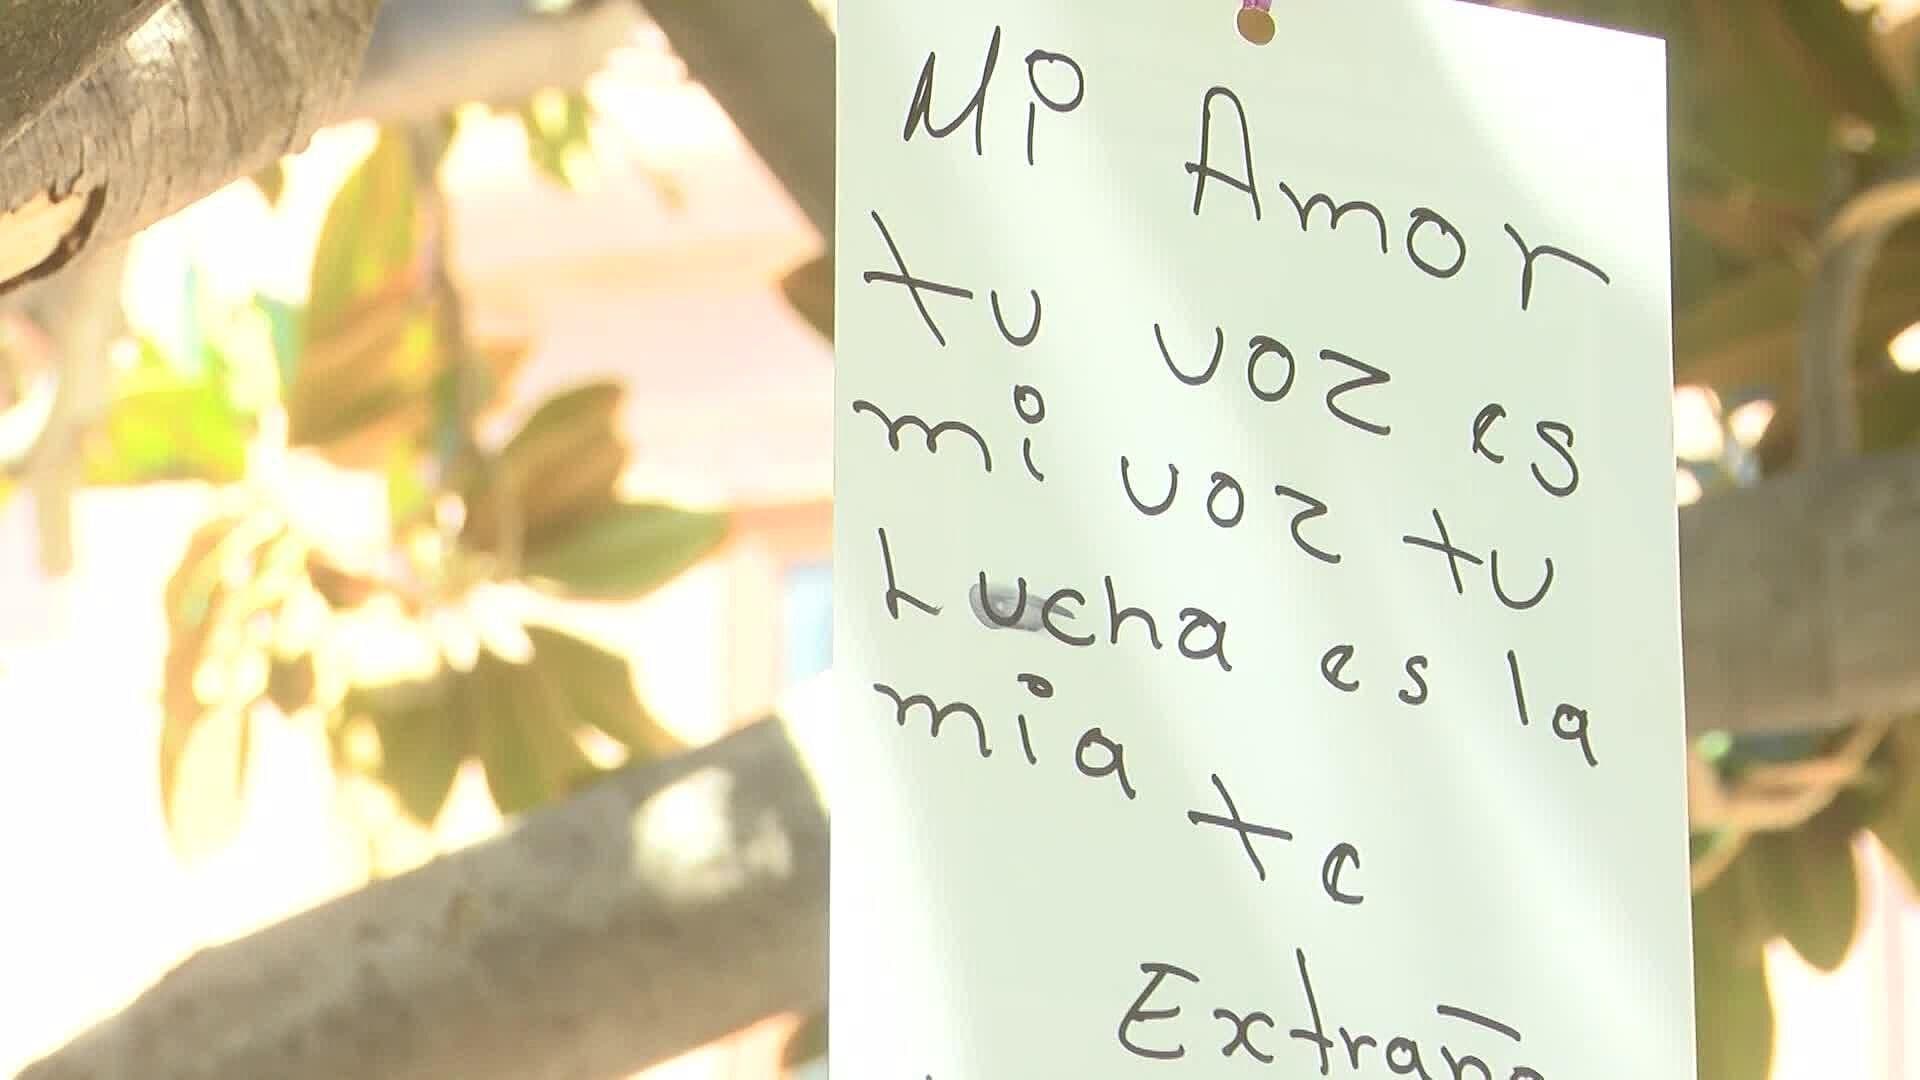 Mi Amor
tu voz es
mi voz tu
Lucha es la
mia te
Extraño